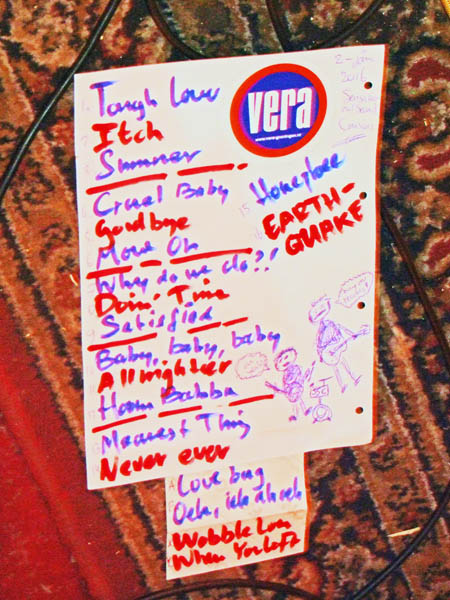 Tough Love
Itch
Summer
Cruel Baby
Goodbye
Move On
Why do we do?!
Doin' Time
Satisfied
Baby, baby, baby
Allnighter
Hoom Babba
Meanest Thing
Never ever
Love bug
Ooh, ich ah ooh
Wobble Lou
When You Left
vera
www.vera-groningen.nl
2-jan
2016
Honeylove
EARTH-
QUAKE